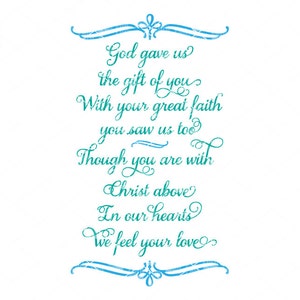 God gave us
the gift of you
With your great faith
you saw us too
Though you are with
Christ above
In our hearts
We feel your love